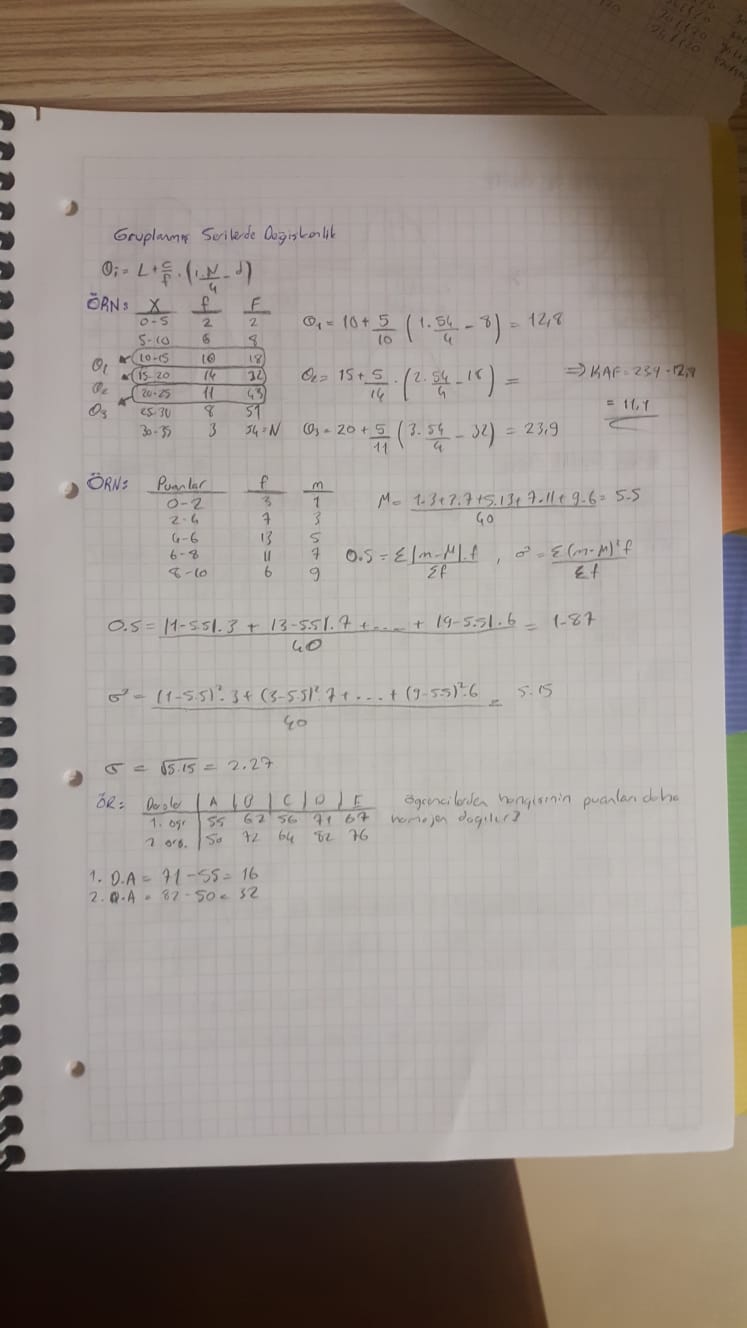 Gruplanmış Serilerde Değişkenlik
Qi = L + c/f . (i.N/4 - d)
ÖRN: X f F
0-5 2 2
5-10 6 8
Q1 10-15 10 18
15-20 14 32
Q2 20-25 11 43
Q3 25-30 8 51
30-35 3 54=N
Q1 = 10 + 5/10 (1.54/4 - 8) = 12,8
Q2 = 15 + 5/14 . (2.54/4 - 18) =
Q3 = 20 + 5/11 (3.54/4 - 32) = 23,9
⇒ KAF = 239 - 12,8
= 11,1
ÖRN: Puanlar f m
0-2 3 1
2-4 7 3
4-6 13 5
6-8 11 7
8-10 6 9
M = 1.3+3.7+5.13+7.11+9.6/40 = 5.5
O.S = Σ|m-M|.f/Σf , σ² = Σ(m-M)²f/Σf
O.S = |1-5.5|.3 + |3-5.5|.7 + .... + |9-5.5|.6/40 = 1.87
σ² = (1-5.5)².3 + (3-5.5)².7 + ... + (9-5.5)².6/40 = 5.15
σ = √5.15 = 2.27
ÖR: Dersler A B C D E
1. ogr 55 62 56 71 67
2 52 72 64 82 76
öğrencilerden hangisinin puanları daha
homojen dağılır?
1. D.A = 71 - 55 = 16
2. D.A = 82 - 50 = 32